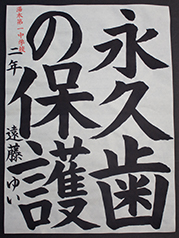 永久歯
の保護
第一中学校
二年
遠藤ゆい